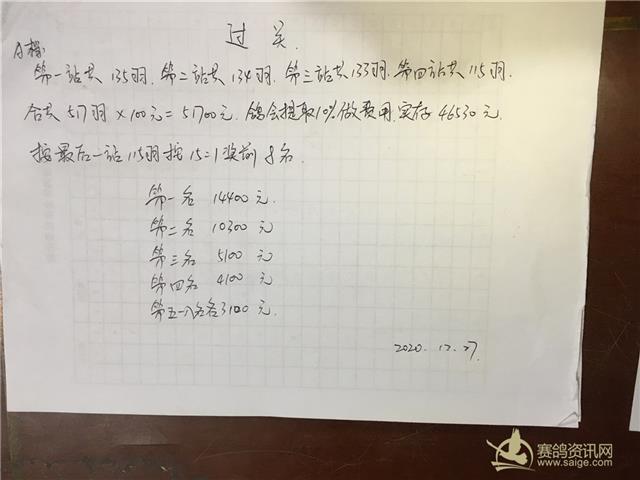 过关
A棚.
第一站共135羽.第二站共134羽.第三站共133羽.第四站共115羽.
合共517羽×100元=51700元.鸽会提取10%做费用.实存46530元.
按最后一站115羽按15=1奖前8名
第一名 14400元.
第二名 10300元
第三名 5100元
第四名 4100元
第五一八名各3100元.
2020.12.27.
赛鸽资讯网
www.saige.com